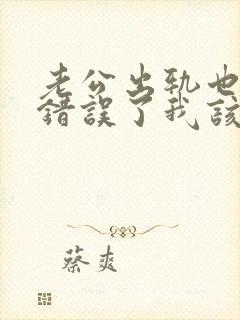 老公出轨也
錯誤了我該
蔡爽